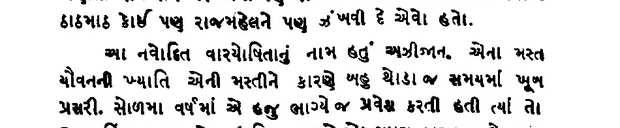 ઠાઠમાઠ કોઈ પણ રાજમહેલને પણ ઝંખવી દે એવો હતો.
આ નવોદિત વારયોષિતાનું નામ હતું અઝીઝાન. એના મસ્ત
યૌવનની ખ્યાતિ એની મસ્તીને કારણે બહુ થોડા જ સમયમાં ખૂબ
પ્રસરી. સોળમા વર્ષમાં એ હજુ ભાગ્યે જ પ્રવેશ કરતી હતી ત્યાં તો